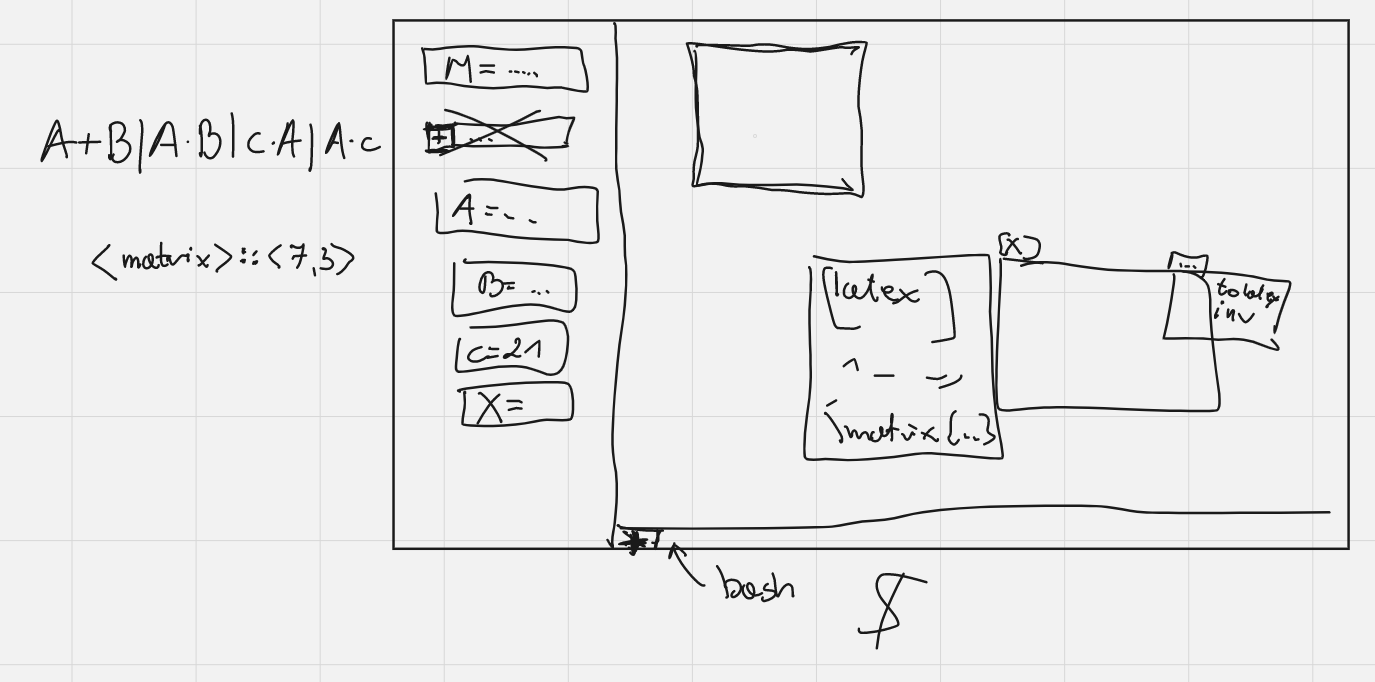 A+B|A·B|c·A|A·c
<matrix>::<7,3>
M= .....
+ ...
A=...
B= ...
c=21
X=
[latex]
^ _ =>
\matrix{...}
(X)
...
inv
bash
$